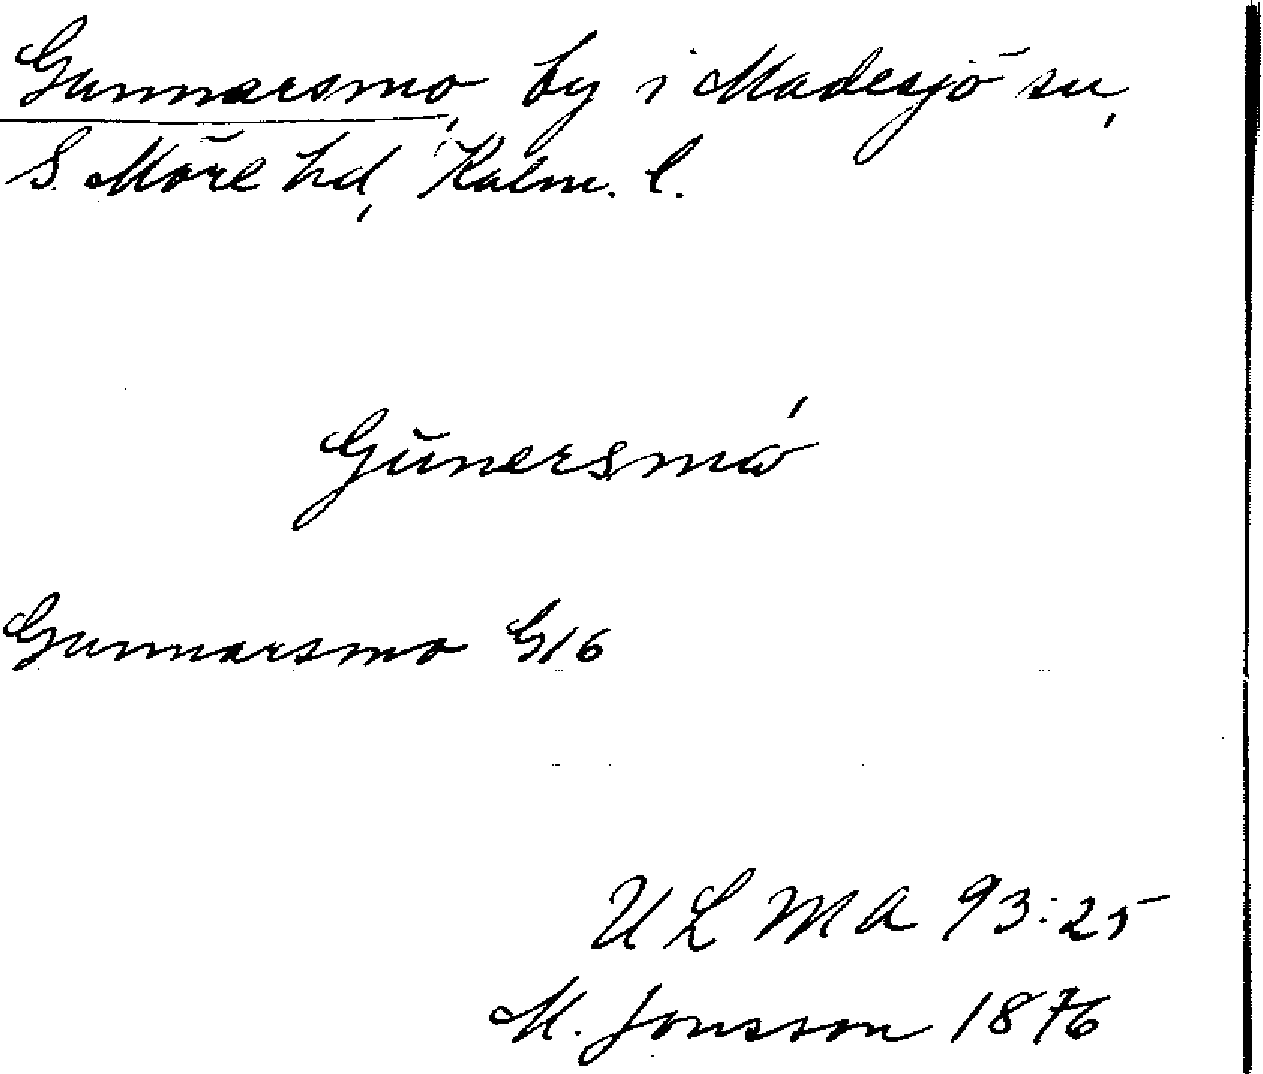 Gunnarsmo, by i Madesjö sn,
S. Möre hd, Kalm. l.
Gŭnersmó
Gunnarsmo G16
ULMA 93:25
M. Jonsson 1876